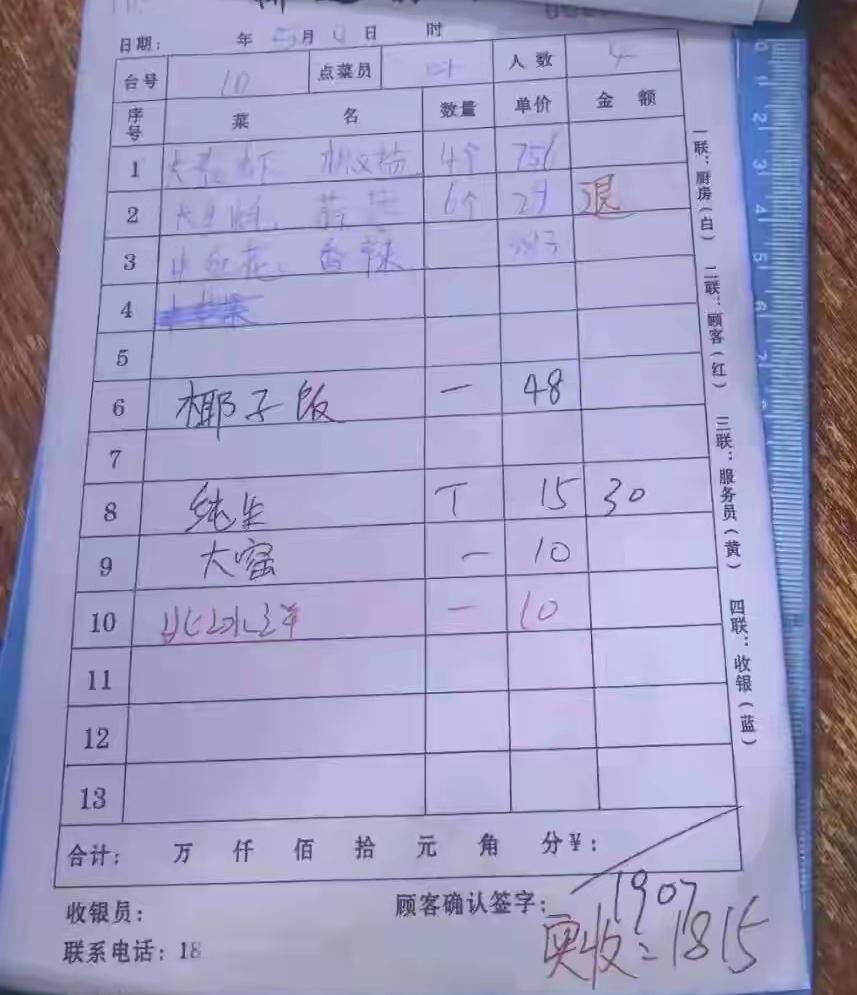 日期： 年 5月 4日 时
台号 10 点菜员 人数 4
序号 菜名 数量 单价 金额
1 4个 756
2 6个 29 退
3 小红花 香辣
4
5
6 椰子饭 一 48
7
8 纯生 T 15 30
9 大窑 一 10
10 北冰洋 一 10
11
12
13
合计： 万 仟 佰 拾 元 角 分¥：
1907
收银员： 顾客确认签字：
实收：1815
联系电话：18
一联：厨房（白） 二联：顾客（红） 三联：服务员（黄） 四联：收银（蓝）